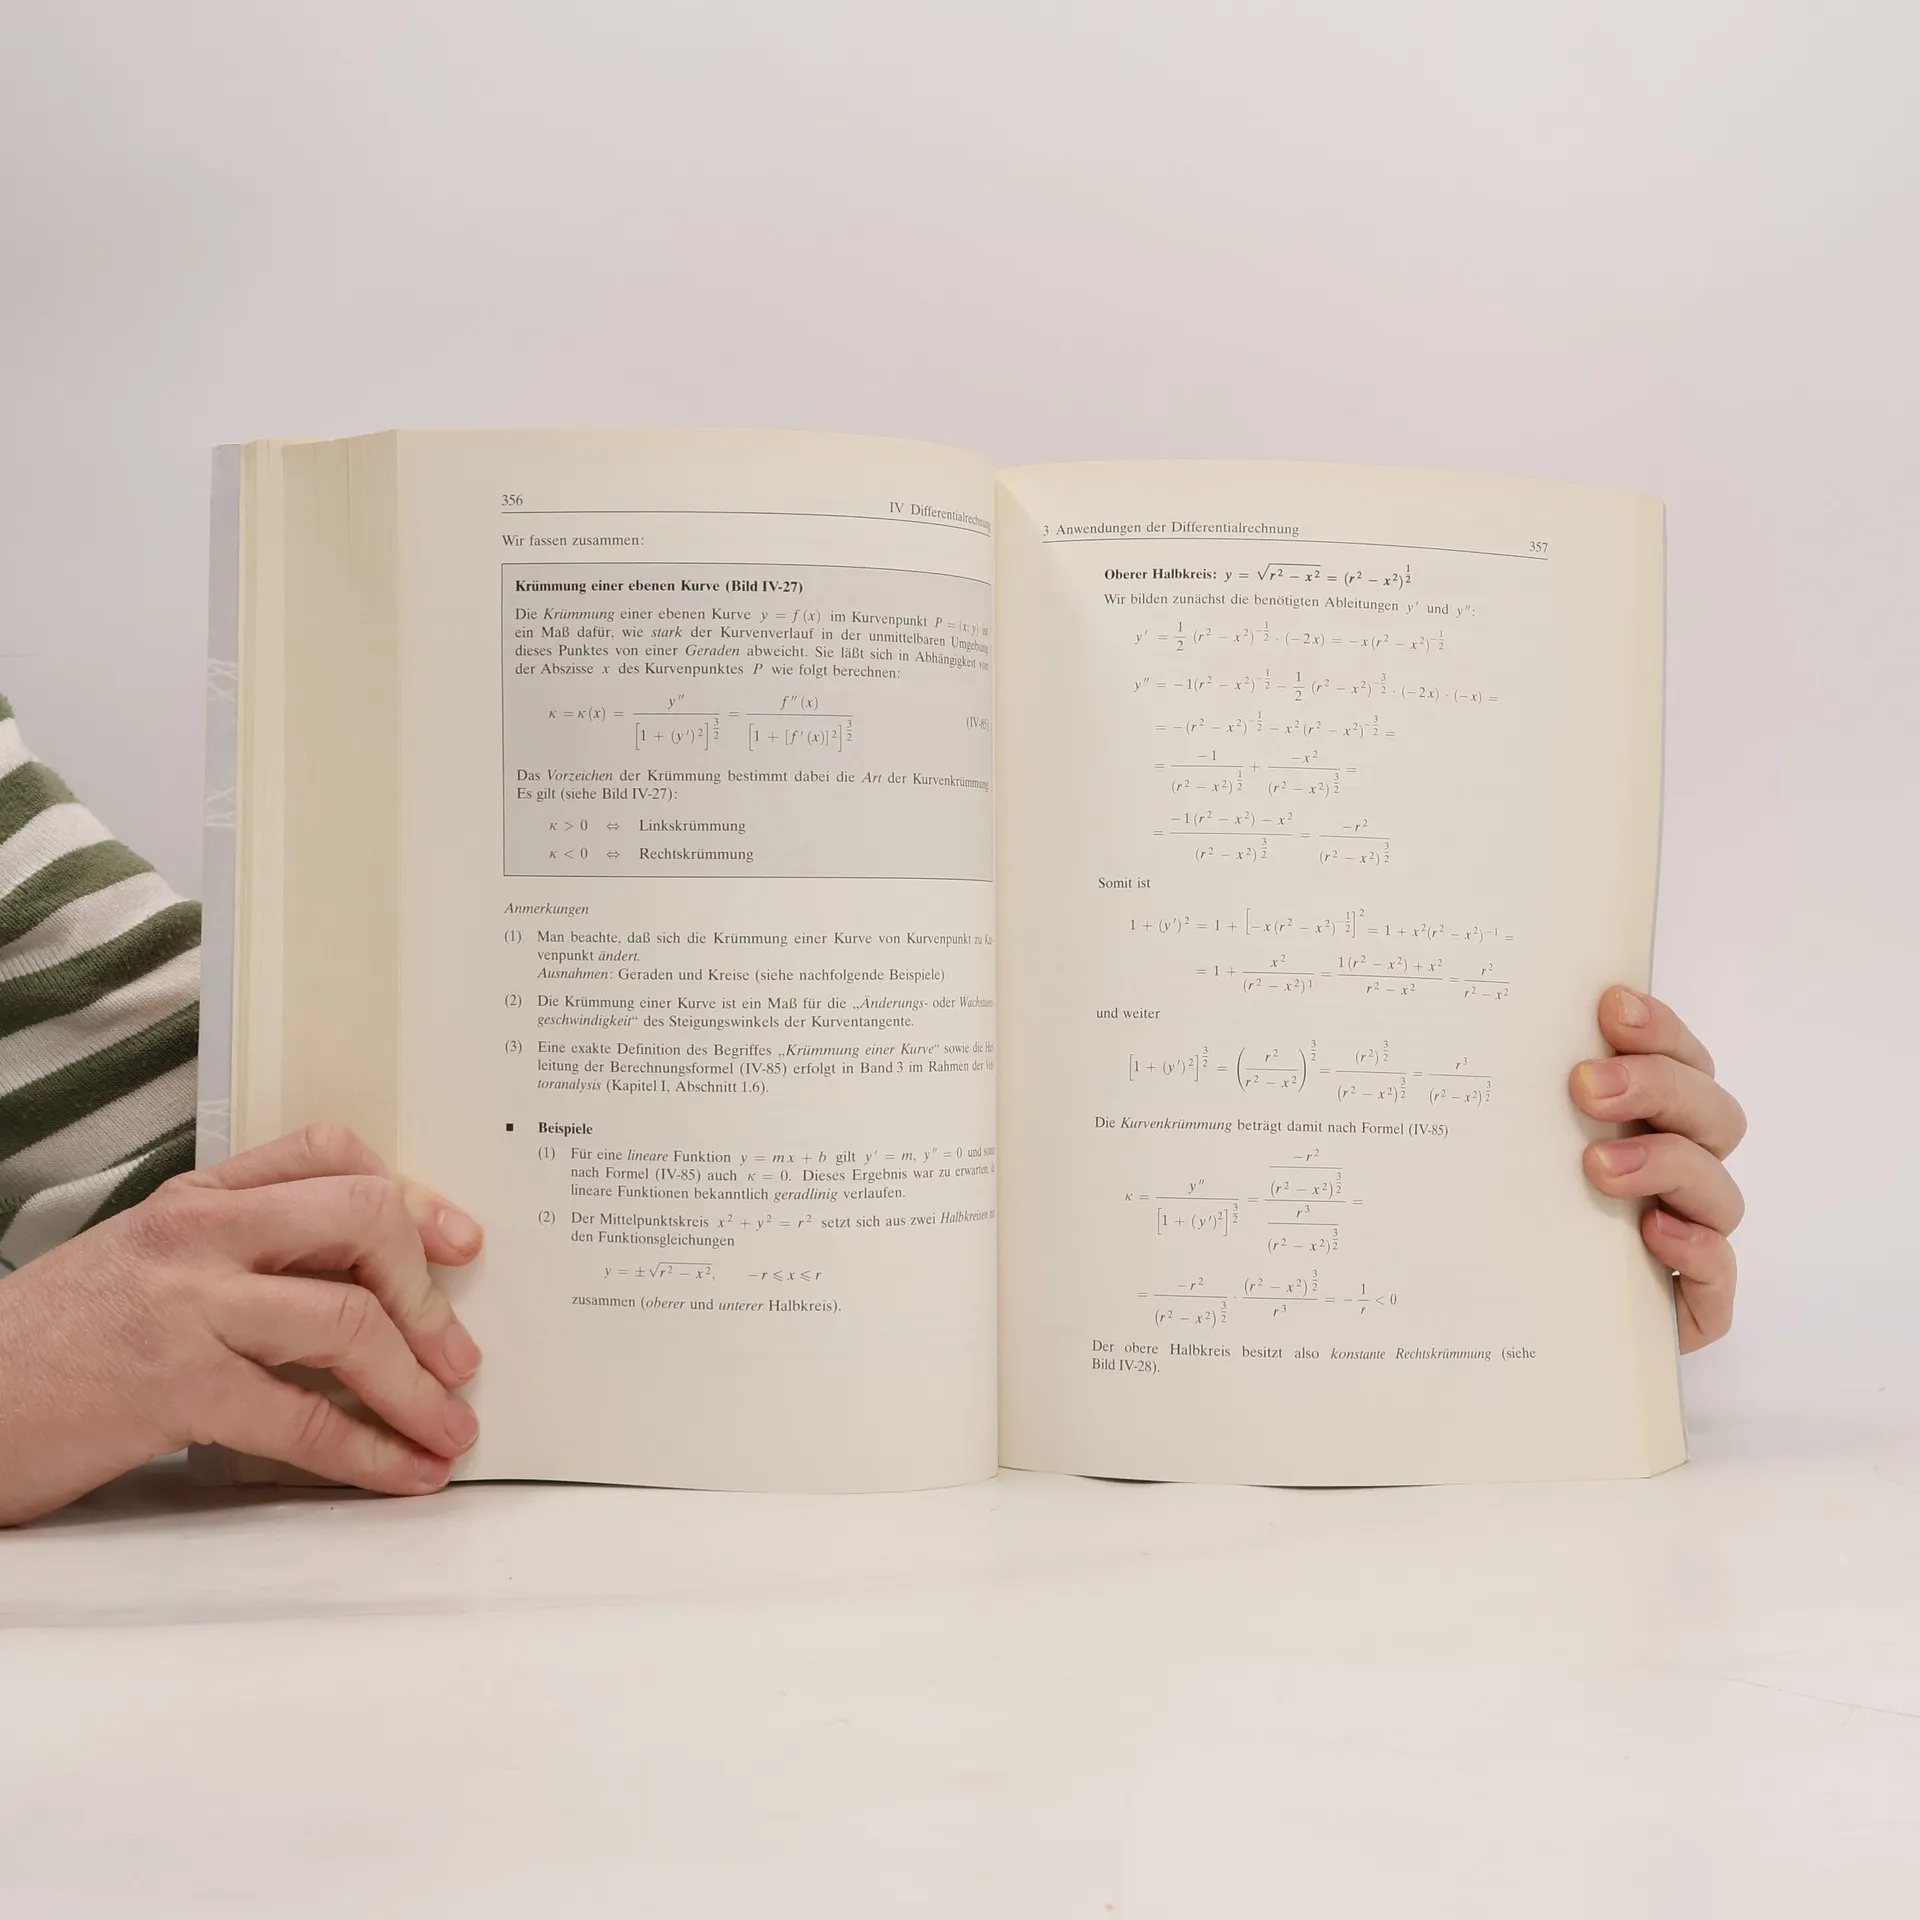 356
IV Differentialrechnung
Wir fassen zusammen:
Krümmung einer ebenen Kurve (Bild IV-27)
Die Krümmung einer ebenen Kurve y = f(x) im Kurvenpunkt P = (x; y) ist
ein Maß dafür, wie stark der Kurvenverlauf in der unmittelbaren Umgebung
dieses Punktes von einer Geraden abweicht. Sie läßt sich in Abhängigkeit von
der Abszisse x des Kurvenpunktes P wie folgt berechnen:
κ = κ(x) = y″ / [1 + (y′)²]^(3/2) = f″(x) / [1 + [f′(x)]²]^(3/2) (IV-85)
Das Vorzeichen der Krümmung bestimmt dabei die Art der Kurvenkrümmung
Es gilt (siehe Bild IV-27):
κ > 0 ⇔ Linkskrümmung
κ < 0 ⇔ Rechtskrümmung
Anmerkungen
(1) Man beachte, daß sich die Krümmung einer Kurve von Kurvenpunkt zu Kur-
venpunkt ändert.
Ausnahmen: Geraden und Kreise (siehe nachfolgende Beispiele)
(2) Die Krümmung einer Kurve ist ein Maß für die „Änderungs- oder Wachstums-
geschwindigkeit“ des Steigungswinkels der Kurventangente.
(3) Eine exakte Definition des Begriffes „Krümmung einer Kurve“ sowie die Her-
leitung der Berechnungsformel (IV-85) erfolgt in Band 3 im Rahmen der Vek-
toranalysis (Kapitel I, Abschnitt 1.6).
■ Beispiele
(1) Für eine lineare Funktion y = mx + b gilt y′ = m, y″ = 0 und somit
nach Formel (IV-85) auch κ = 0. Dieses Ergebnis war zu erwarten,
lineare Funktionen bekanntlich geradlinig verlaufen.
(2) Der Mittelpunktskreis x² + y² = r² setzt sich aus zwei Halbkreisen mit
den Funktionsgleichungen
y = ±√(r² − x²), −r ⩽ x ⩽ r
zusammen (oberer und unterer Halbkreis).
3 Anwendungen der Differentialrechnung
357
Oberer Halbkreis: y = √(r² − x²) = (r² − x²)^(1/2)
Wir bilden zunächst die benötigten Ableitungen y′ und y″:
y′ = 1/2 (r² − x²)^(−1/2) · (−2x) = −x(r² − x²)^(−1/2)
y″ = −1(r² − x²)^(−1/2) − 1/2 (r² − x²)^(−3/2) · (−2x) · (−x) =
= −(r² − x²)^(−1/2) − x²(r² − x²)^(−3/2) =
= −1 / (r² − x²)^(1/2) + −x² / (r² − x²)^(3/2) =
= (−1(r² − x²) − x²) / (r² − x²)^(3/2) = −r² / (r² − x²)^(3/2)
Somit ist
1 + (y′)² = 1 + [−x(r² − x²)^(−1/2)]² = 1 + x²(r² − x²)^(−1) =
= 1 + x² / (r² − x²)¹ = (1(r² − x²) + x²) / (r² − x²) = r² / (r² − x²)
und weiter
[1 + (y′)²]^(3/2) = (r² / (r² − x²))^(3/2) = (r²)^(3/2) / (r² − x²)^(3/2) = r³ / (r² − x²)^(3/2)
Die Kurvenkrümmung beträgt damit nach Formel (IV-85)
κ = y″ / [1 + (y′)²]^(3/2) = (−r² / (r² − x²)^(3/2)) / (r³ / (r² − x²)^(3/2)) =
= −r² / (r² − x²)^(3/2) · (r² − x²)^(3/2) / r³ = −1/r < 0
Der obere Halbkreis besitzt also konstante Rechtskrümmung (siehe
Bild IV-28).